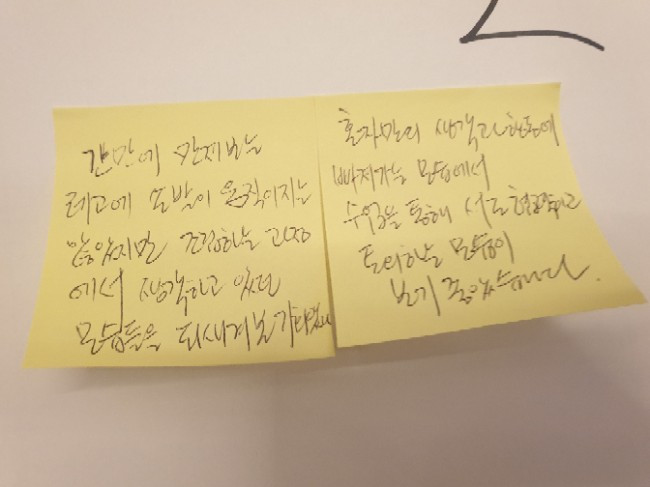 간만에 만져보는
레고에 또 발이 움직이지는
않았지만 조립하는 과정
에서 생각하고 있던
모습들을 되새겨볼 기회였
혼자만의 생각과 행동에
빠져가는 모습에서
수업을 통해 서로 협력하고
토의하는 모습이
보기 좋았습니다.